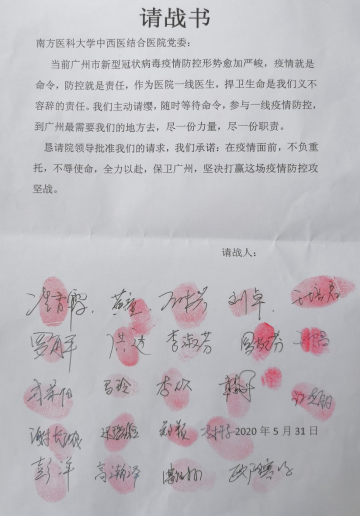 请战书
南方医科大学中西医结合医院党委：
当前广州市新型冠状病毒疫情防控形势愈加严峻，疫情就是
命令，防控就是责任，作为医院一线医生，捍卫生命是我们义不
容辞的责任。我们主动请缨，随时等待命令，参与一线疫情防控，
到广州最需要我们的地方去，尽一份力量，尽一份职责。
恳请院领导批准我们的请求，我们承诺：在疫情面前，不负重
托，不辱使命，全力以赴，保卫广州，坚决打赢这场疫情防控攻
坚战。
请战人：
刘卓
洪达 李淑芬
李欣
2020 年 5 月 31 日
彭洋 高瀚泽